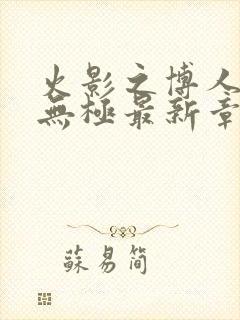 火影之博人
無極最新章
蘇易简